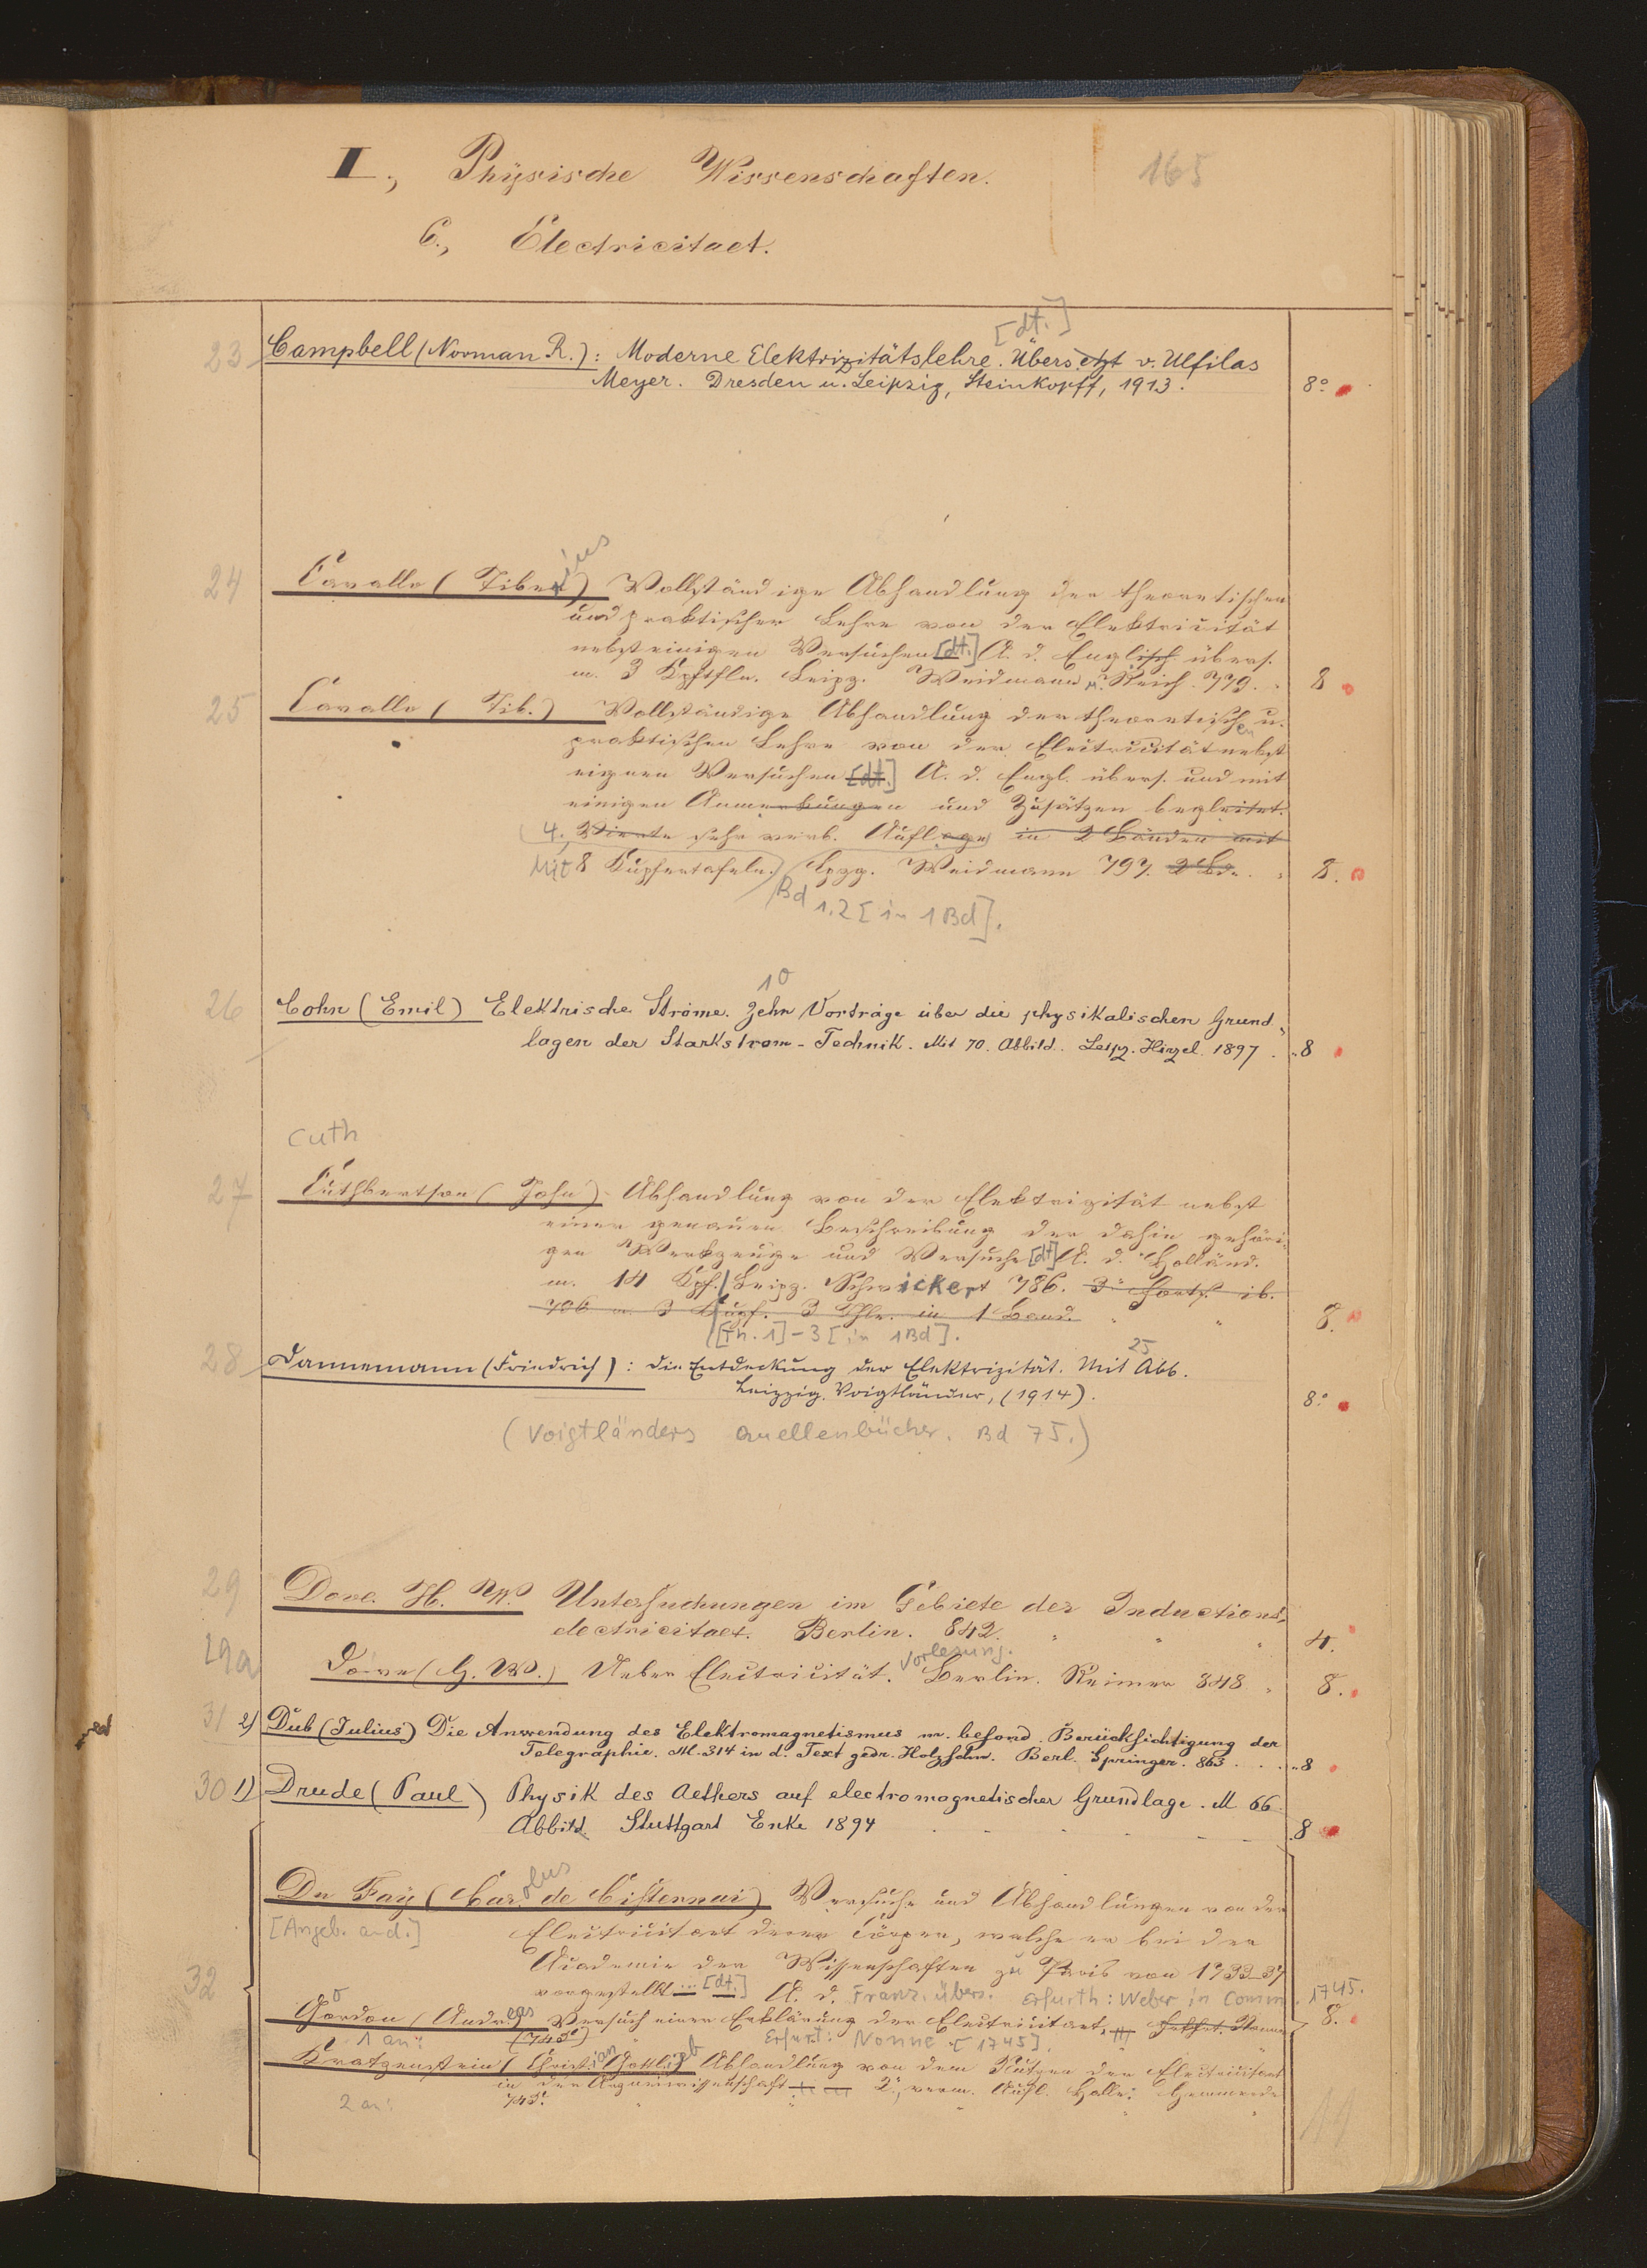 I., Physische Wissenschaften. 165
6., Electricitaet.
[dt.]
23 Campbell (Norman R.): Moderne Elektrizitätslehre. Übersetzt v. Ulfilas
Meyer. Dresden u. Leipzig, Steinkopff, 1913. 8°
24 Cavallo (Tiberius) Vollständige Abhandlung der theoretischen
und praktischer Lehre von der Elektricität
nebst einigen Versuchen [dt.] A. d. Englisch übers.
m. 3 Kpftfln. Leipz. Weidmann u. Reich. 779. 8
25 Cavallo (Tib.) Vollständige Abhandlung der theoretischen u.
praktischen Lehre von der Electricität nebst
eignen Versuchen [dt.] A. d. Engl. übers. und mit
einigen Anmerkungen und Zusätzen begleitet.
(4. Vierte sehr verb. Auflage) in 2 Bänden mit
Mit 8 Kupfertafeln.) Lpzg. Weidmann 797. 2 Bde. 8.
Bd 1.2 [in 1 Bd].
10
26 Cohn (Emil) Elektrische Ströme. Zehn Vorträge über die physikalischen Grund-
lagen der Starkstrom-Technik. Mit 70. Abbild. Leipz. Hirzel. 1897. 8
Cuth
27 Cuthbertson (John) Abhandlung von der Elektrizität nebst
einer genauen Beschreibung der dahin gehöri-
gen Werkzeuge und Versuche [dt] A. d. Holländ.
m. 14 Kpf. Leipz. Schwickert 786. 3e Forts. ib.
796 m. 3 Kupf. 3 Thle. in 1 Band. 8.
[Th. 1]-3 [in 1 Bd].
25
28 Dannemann (Friedrich): Die Entdeckung der Elektrizität. Mit Abb.
Leipzig, Voigtländer, (1914). 8°
(Voigtländers Quellenbücher. Bd 75.)
29 Dove. H. W. Untersuchungen im Gebiete der Inductions-
electricitaet. Berlin. 842. 4.
Vorlesung.
29a Dove (H. W.) Ueber Electricität. Berlin. Reimer 848 8.
31 2) Dub (Julius) Die Anwendung des Elektromagnetismus m. besond. Berücksichtigung der
Telegraphie. M. 314 in d. Text gedr. Holzschn. Berl. Springer. 863. 8
30 1) Drude (Paul) Physik des Aethers auf electromagnetischer Grundlage. M 66
Abbild. Stuttgart Enke 1894 8
Du Fay (Carolus de Cisternai) Versuche und Abhandlungen von der
[Angeb. and.] Electricitaet derer Cörper, welche er bei der
Academie der Wissenschaften zu Paris von 1733-37
32 vorgestellt ... [dt.] A. d. Franz. übers. Erfurth: Weber in Comm. 1745.
Gordon (Andreas) Versuch einer Erklärung der Electricitaet. 8.
1 an: (745) Erfurt: Nonne [1745].
Kratzenstein (Christian Gottlieb) Abhandlung von dem Nutzen der Electricitaet
in der Arzneiwissenschaft 2e verm. Aufl. Halle: Hemmerde
2 an: 745.
11